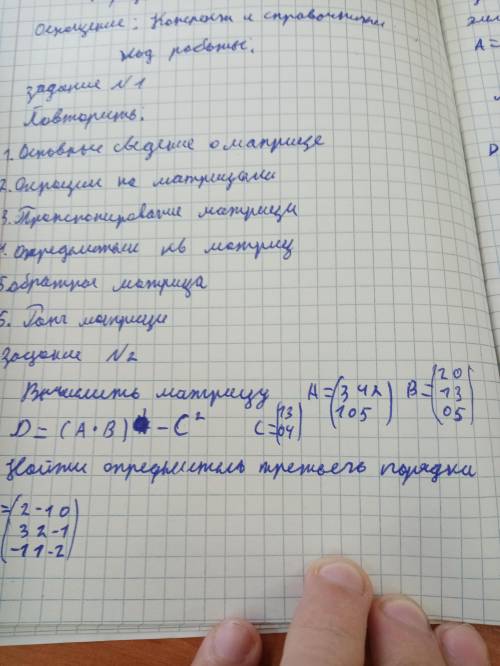 Оснощение: Конспект и справочники
Ход работы.
Задание N1
Повторить:
1. Основные сведение о матрице
2. Операции на матрицами
3. Транспонирование матрицы
4. Определители кв матриц
5. обратная матрица
6. Ранг матрицы
Задание N2
Вычислить матрицу A=(3 4 2 B=(2 0
1 0 5) 1 3
0 5)
D=(A·B) - C² C=(1 3
0 4)
Найти определитель третьего порядка
=(2 -1 0
3 2 -1
-1 1 -2)
A=
D